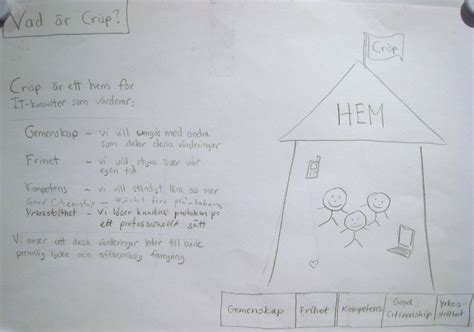 Vad är Crisp?
Crisp är ett hem för
IT-konsulter som värderar:
Gemenskap - vi vill umgås med andra
som delar dessa värderingar
Frihet - vi vill styra över vår
egen tid
Kompetens - vi vill ständigt lära oss mer
Good Citizenship - Hjärtat före plånboken
Yrkesstolthet - Vi löser kundens problem på
ett professionellt sätt
Vi anser att dessa värderingar leder till både
personlig lycka och affärsmässig framgång
Crisp
HEM
Gemenskap
Frihet
Kompetens
Good
Citizenship
Yrkes-
stolthet